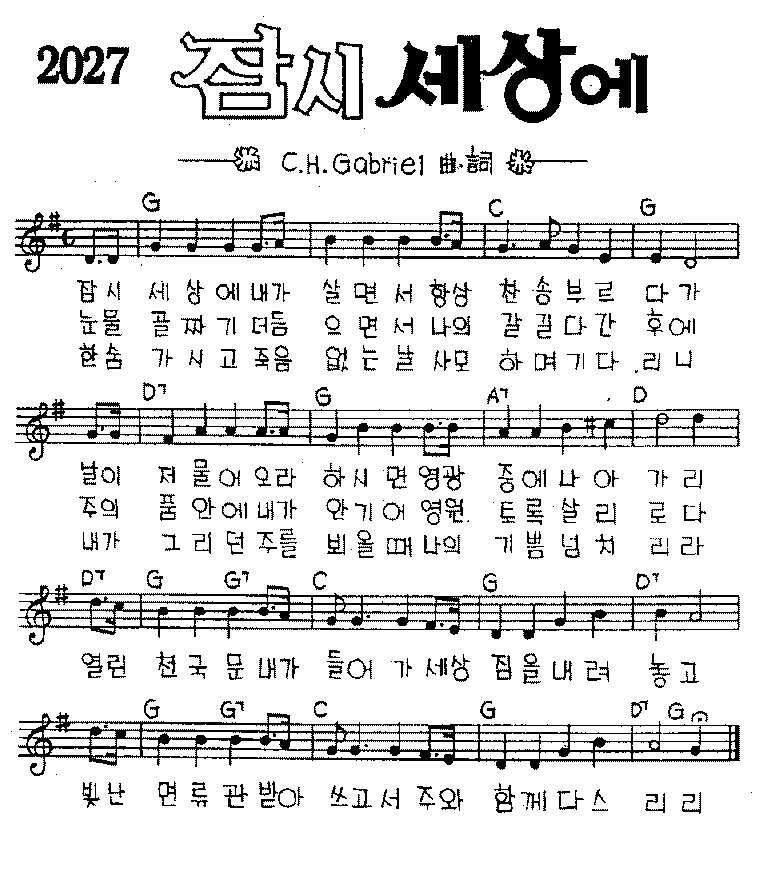 2027 잠시 세상에
C.H.Gabriel 曲·詞
G C G
잠시 세상에내가 살면서 항상 찬송부르 다가
눈물 골짜기더듬 으면서나의 갈길다간 후에
한숨 가시고죽음 없는날사모 하며기다 리니
D7 G A7 D
날이 저물어오라 하시면영광 중에나아 가리
주의 품안에내가 안기어영원 토록살리 로다
내가 그리던주를 뵈올때나의 기쁨넘치 리라
D7 G G7 C G D7
열린 천국문내가 들어가세상 짐을내려 놓고
G G7 C G D7 G
빛난 면류관받아 쓰고서주와 함께다스 리리